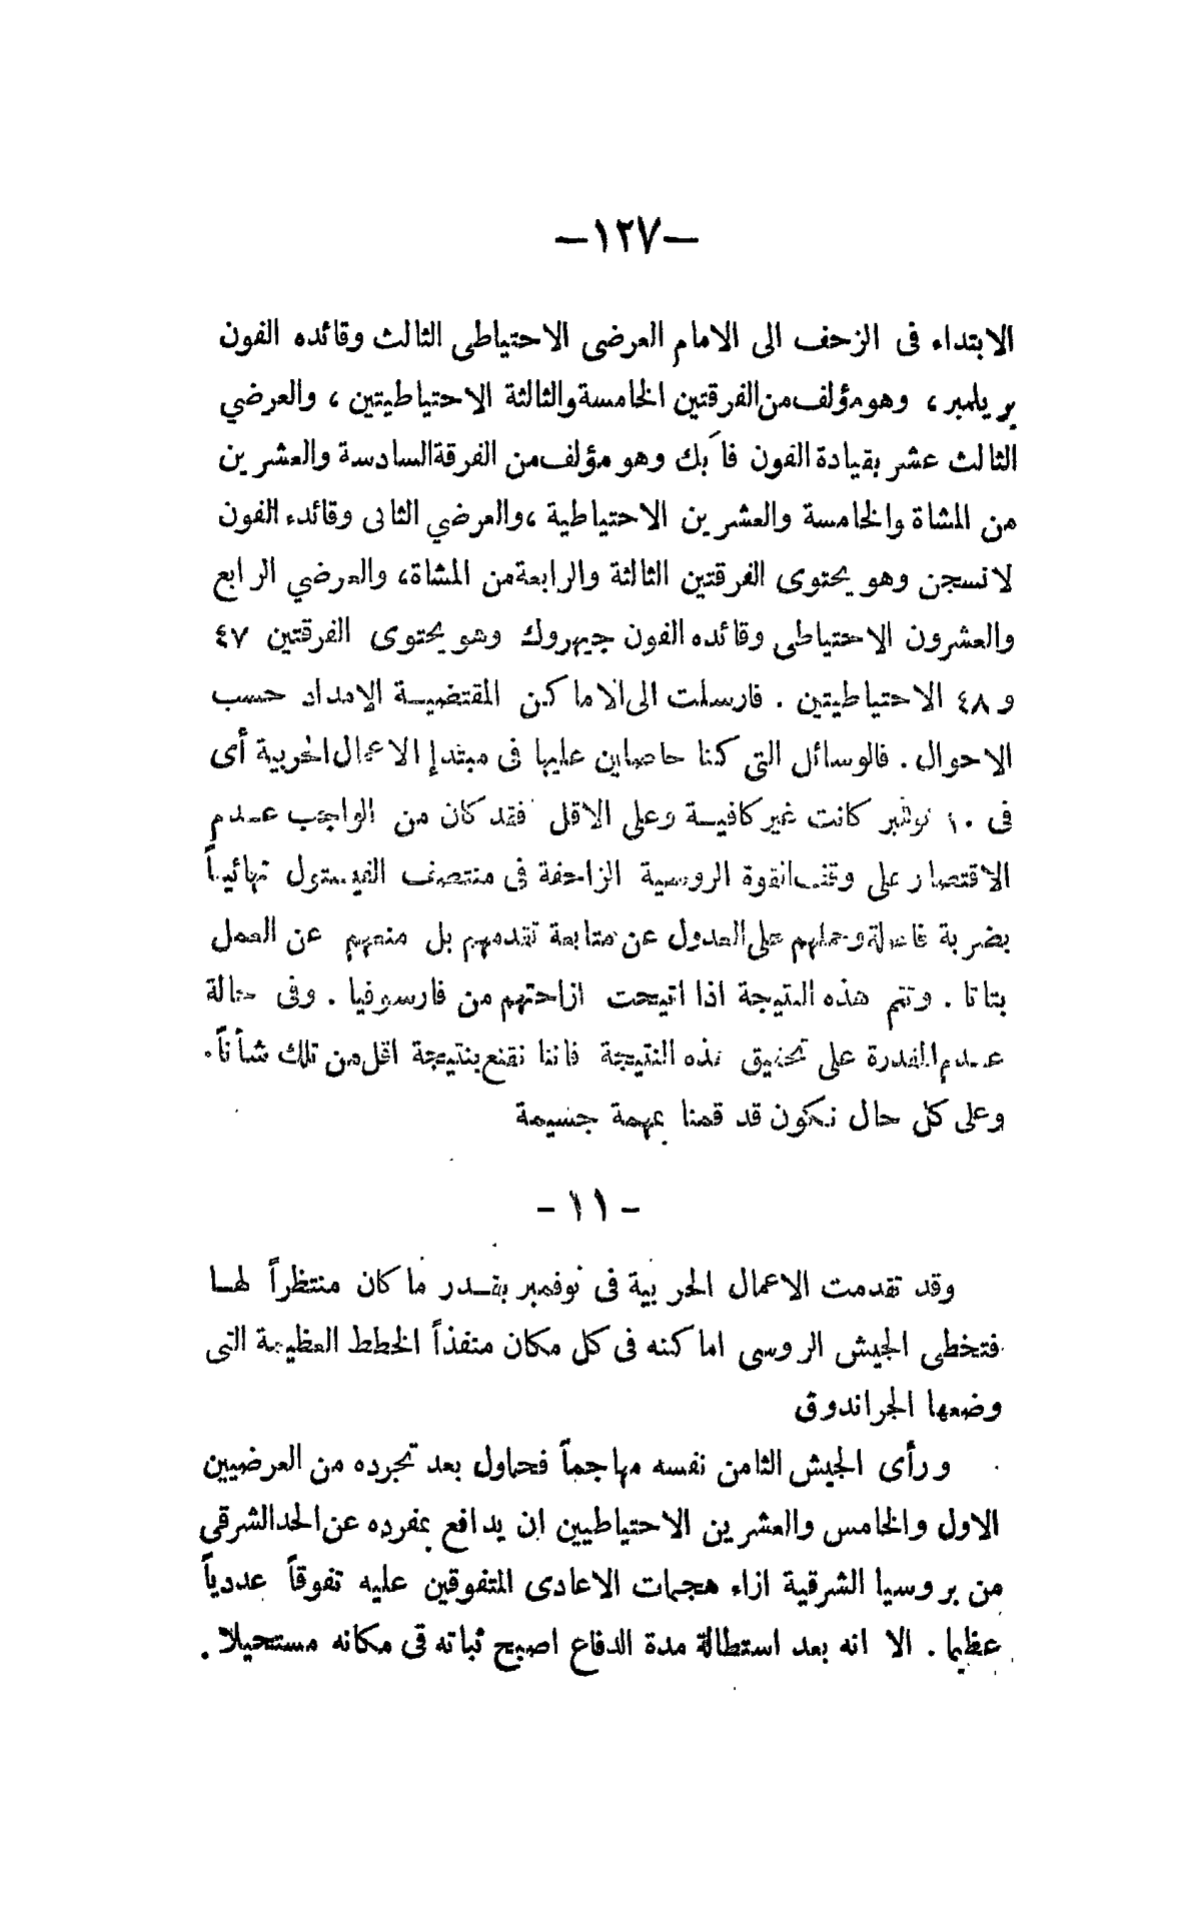 —١٢٧—
الابتداء فى الزحف الى الامام العرضى الاحتياطى الثالث وقائده الفون
بريلمبر ، وهو مؤلف من الفرقتين الخامسة والثالثة الاحتياطيتين ، والعرضي
الثالث عشر بقيادة الفون فآبك وهو مؤلف من الفرقة السادسة والعشرين
من المشاة والخامسة والعشرين الاحتياطية ، والعرضي الثانى وقائده الفون
لانسجن وهو يحتوى الفرقتين الثالثة والرابعة من المشاة، والعرضي الرابع
والعشرون الاحتياطى وقائده الفون جيهروك وهو يحتوى الفرقتين ٤٧
و ٤٨ الاحتياطيتين . فارسلت الى الاماكن المقتضية الامداد حسب
الاحوال . فالوسائل التى كنا حاصلين عليها فى مبتدإ الاعمال الحربية أى
فى ١٠ نوفمبر كانت غير كافية وعلى الاقل فقد كان من الواجب عدم
الاقتصار على وقف القوة الروسية الزاحفة فى منتصف الفيستول نهائياً
بضربة فاصلة وحملهم على العدول عن متابعة تقدمهم بل منعهم عن العمل
بتاتا . وتتم هذه النتيجة اذا اتيحت ازاحتهم من فارسوفيا . وفى حالة
عدم القدرة على تحقيق هذه النتيجة فاننا نقنع بنتيجة اقل من تلك شأناً .
وعلى كل حال نكون قد قمنا بمهمة جسيمة
- ١١ -
وقد تقدمت الاعمال الحربية فى نوفمبر بقدر ما كان منتظراً لها
فتخطى الجيش الروسى اماكنه فى كل مكان منفذاً الخطط العظيمة التى
وضعها الجراندوق
ورأى الجيش الثامن نفسه مهاجماً فحاول بعد تجرده من العرضيين
الاول والخامس والعشرين الاحتياطيين ان يدافع بمفرده عن الحد الشرقى
من بروسيا الشرقية ازاء هجمات الاعادى المتفوقين عليه تفوقاً عددياً
عظيما . الا انه بعد استطالة مدة الدفاع اصبح ثباته فى مكانه مستحيلا .